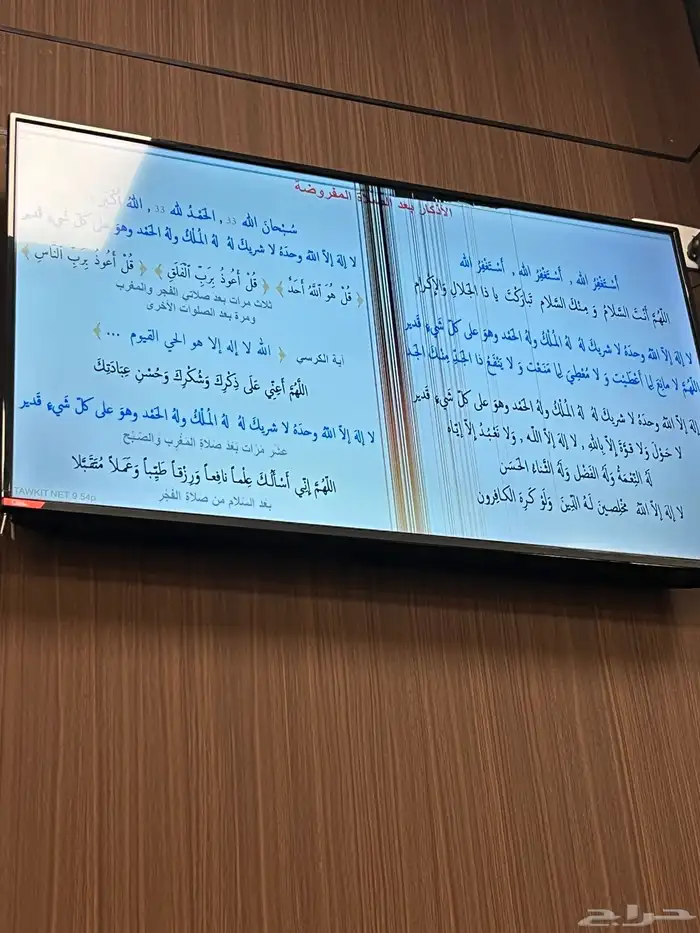 الأذكار بعد الصلاة المفروضة
أستغفر الله , أستغفر الله , أستغفر الله
اللهم أنت السلام و منك السلام تباركت يا ذا الجلال والإكرام
لا إله إلا الله وحده لا شريك له له الملك وله الحمد وهو على كل شيء قدير
اللهم لا مانع لما أعطيت و لا معطي لما منعت و لا ينفع ذا الجد منك الجد
لا إله إلا الله وحده لا شريك له له الملك وله الحمد وهو على كل شيء قدير
لا حول ولا قوة إلا بالله , لا إله إلا الله , ولا نعبد إلا إياه
له النعمة وله الفضل وله الثناء الحسن
لا إله إلا الله مخلصين له الدين ولو كره الكافرون
سبحان الله 33 , الحمد لله 33 , الله أكبر
لا إله إلا الله وحده لا شريك له له الملك وله الحمد وهو على كل شيء قدير
﴿ قُلْ هُوَ ٱللَّهُ أَحَدٌ ﴾ ﴿ قُلْ أَعُوذُ بِرَبِّ ٱلْفَلَقِ ﴾ ﴿ قُلْ أَعُوذُ بِرَبِّ ٱلنَّاسِ ﴾
ثلاث مرات بعد صلاتي الفجر والمغرب
ومرة بعد الصلوات الأخرى
آية الكرسي ﴿ الله لا إله إلا هو الحي القيوم ... ﴾
اللهم أعني على ذكرك وشكرك وحسن عبادتك
لا إله إلا الله وحده لا شريك له له الملك وله الحمد وهو على كل شيء قدير
عشر مرات بعد صلاة المغرب والصبح
اللهم إني أسألك علماً نافعاً ورزقاً طيباً وعملاً متقبلا
بعد السلام من صلاة الفجر
TAWKIT.NET 9.54p
حراج